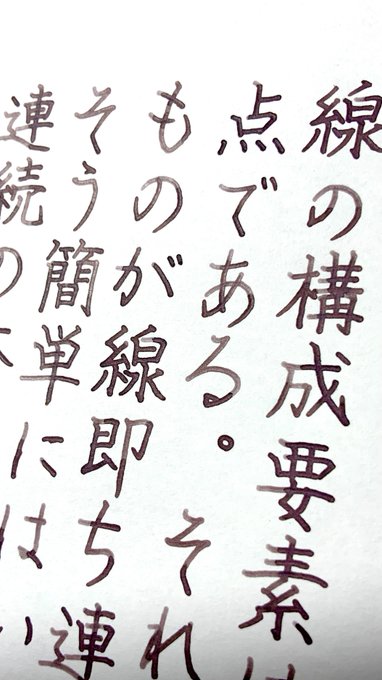 線の構成要素は
点である。それ
ものが線即ち連
そう簡単にはい
連続の